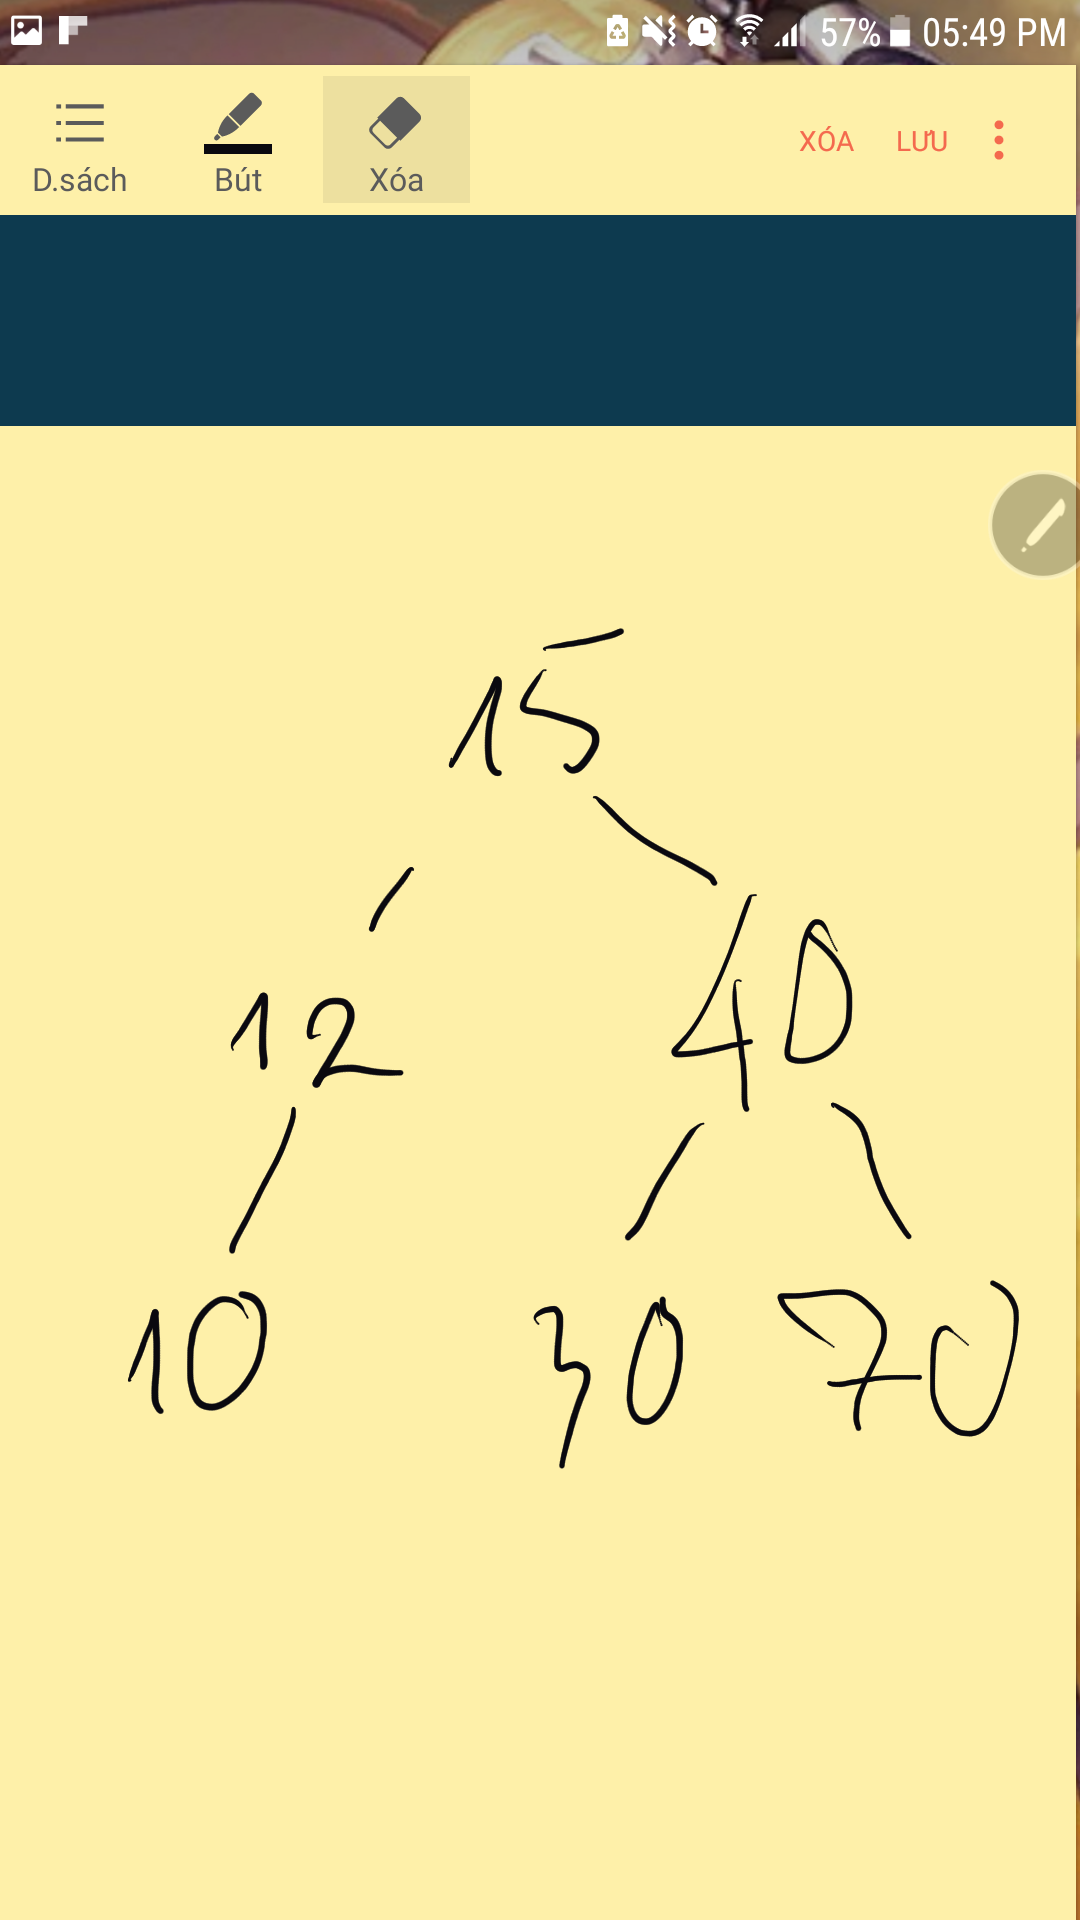 57% 05:49 PM
D.sách Bút Xóa XÓA LƯU
15
12 40
10 30 70